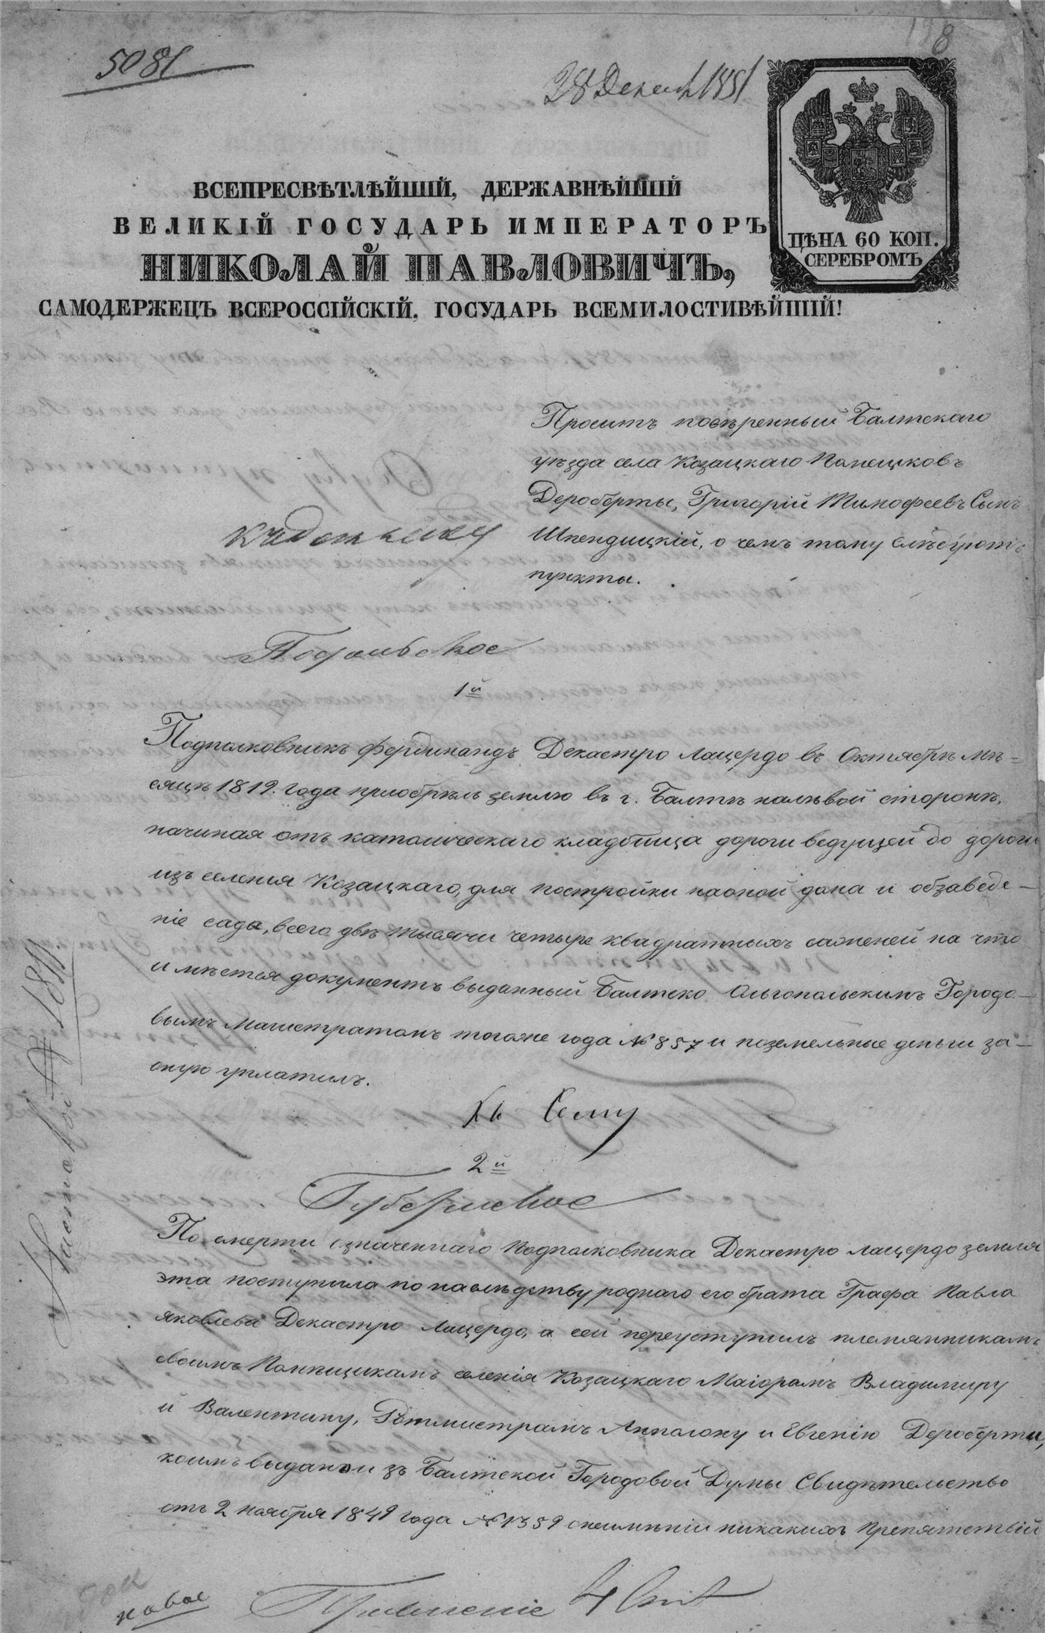 5081
28 Декаб 1851
198
ЦѢНА 60 КОП.
СЕРЕБРОМЪ
ВСЕПРЕСВѢТЛѢЙШІЙ, ДЕРЖАВНѢЙШІЙ
ВЕЛИКІЙ ГОСУДАРЬ ИМПЕРАТОРЪ
НИКОЛАЙ ПАВЛОВИЧЪ,
САМОДЕРЖЕЦЪ ВСЕРОССІЙСКІЙ, ГОСУДАРЬ ВСЕМИЛОСТИВѢЙШІЙ!
Проситъ повѣренный Балтскаго
уѣзда села Козацкаго Помещиковъ
Дероберты, Григорій Тимофеевъ Сынъ
Шпендицкій, о чемъ тому слѣдуютъ
пункты.
Подольское
1й
Подполковникъ Фердинандъ Декастро Лацердо въ Октябрѣ мѣ-
сяцѣ 1819. года приобрѣлъ землю въ г. Балтѣ налѣвой сторонѣ,
начиная отъ католическаго кладбища дороги ведущей до дороги
изъ селенія Козацкаго, для постройки наоной дома и обзаведе-
ніе сада, всего двѣ тысячи четыре квадратныхъ саженей на что
имѣется документъ выданный Балтско Ольгопольскимъ Городо-
вымъ Магистратомъ тогоже года № 857 и поземельные деньги за-
оную уплатилъ.
Къ Сему
2й
Губернское
По смерти означеннаго Подполковника Декастро Лацердо земля
эта поступила по наслѣдству роднаго его брата Графа Павла
Яковлева Декастро Лацердо, а сей переуступилъ племянникамъ
своимъ Помѣщикамъ селенія Козацкаго Маіорамъ Владимиру
и Валентину, Ротмистрамъ Апполону и Евгенію Дероберти,
коимъ выдано и зъ Балтской Городовой Думы Свидѣтельство
отъ 2 ноября 1849 года № 1359 онеимѣніи никакихъ препятствій
Правленіе